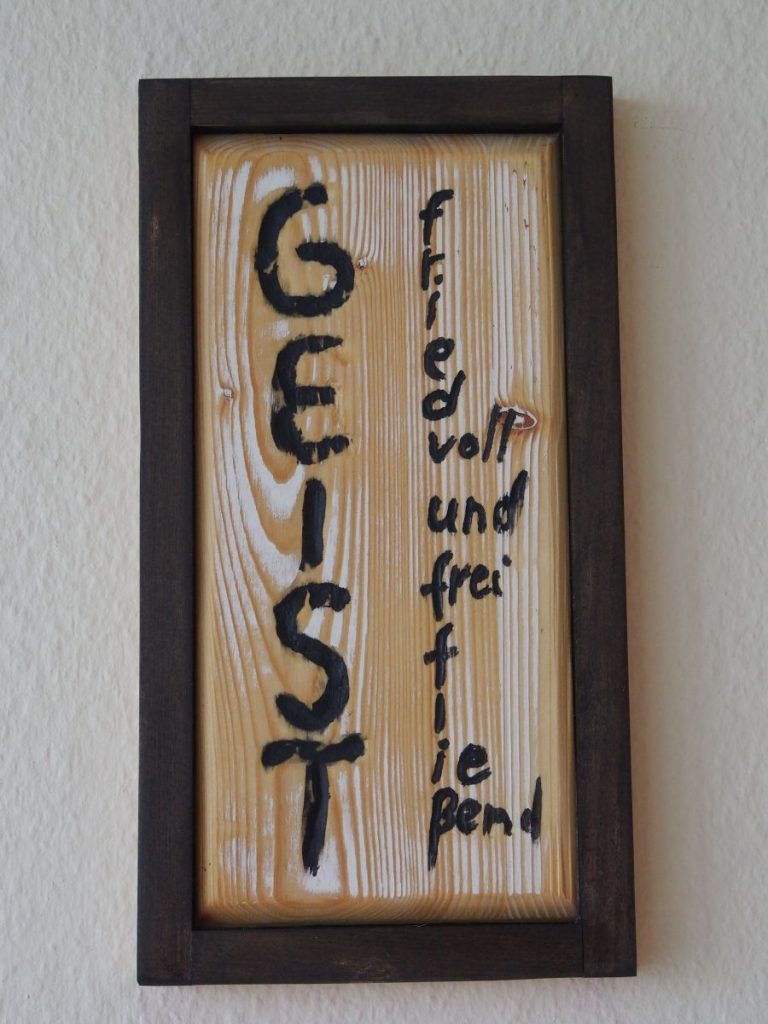 GEIST
f
r
i
e
d
voll
und
frei
f
l
ie
ßend